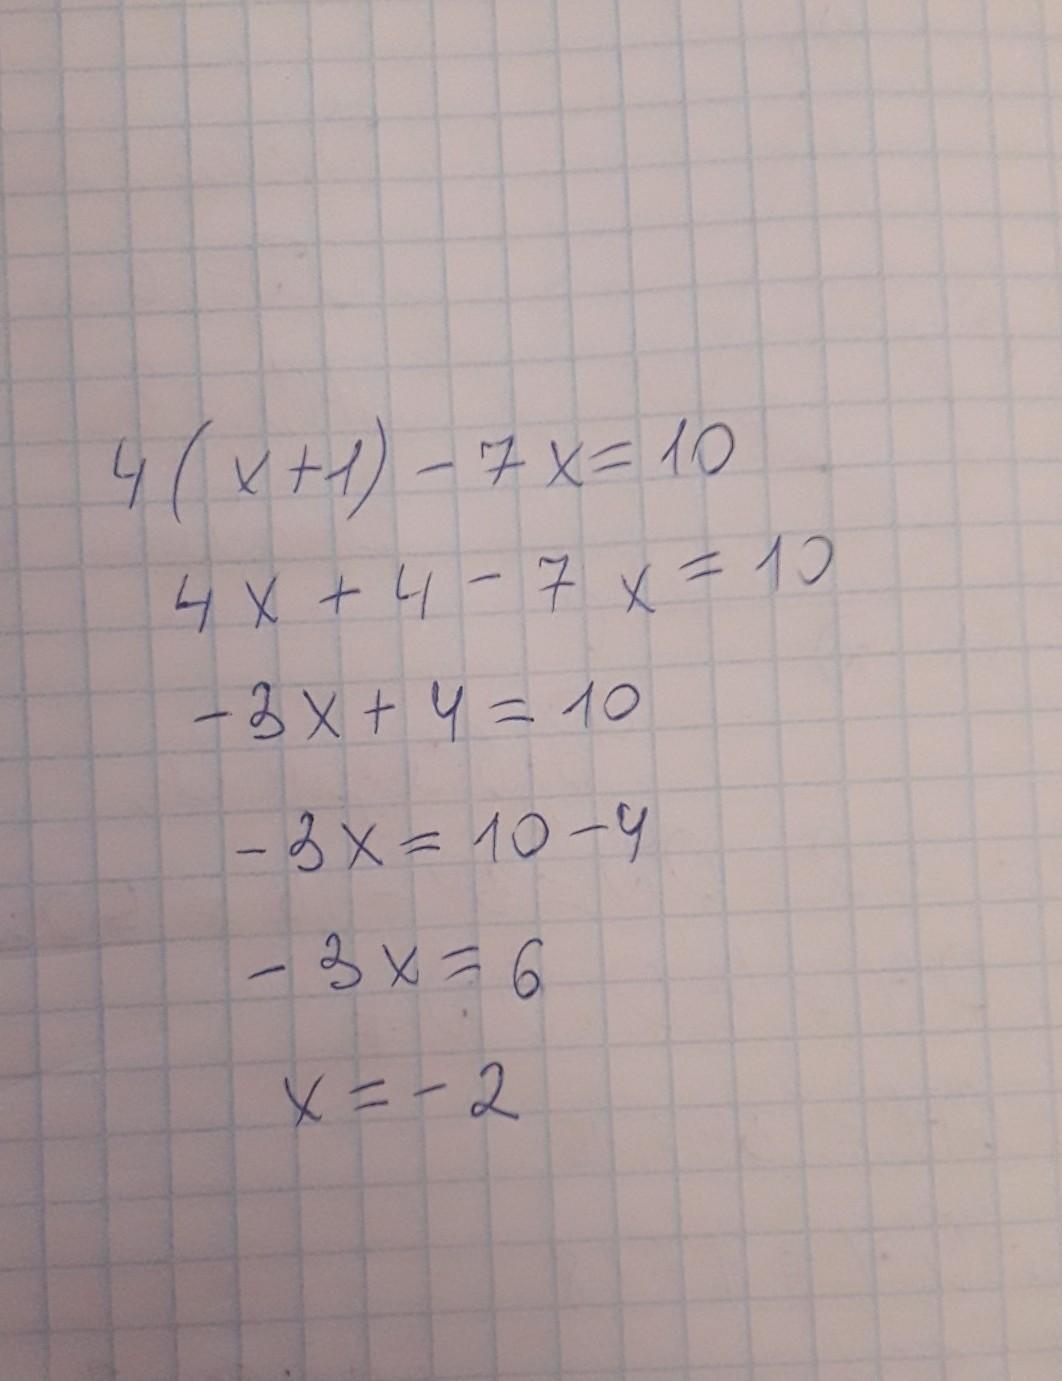 4(x+1)-7x=10
4x+4-7x=10
-3x+4=10
-3x=10-4
-3x=6
x=-2